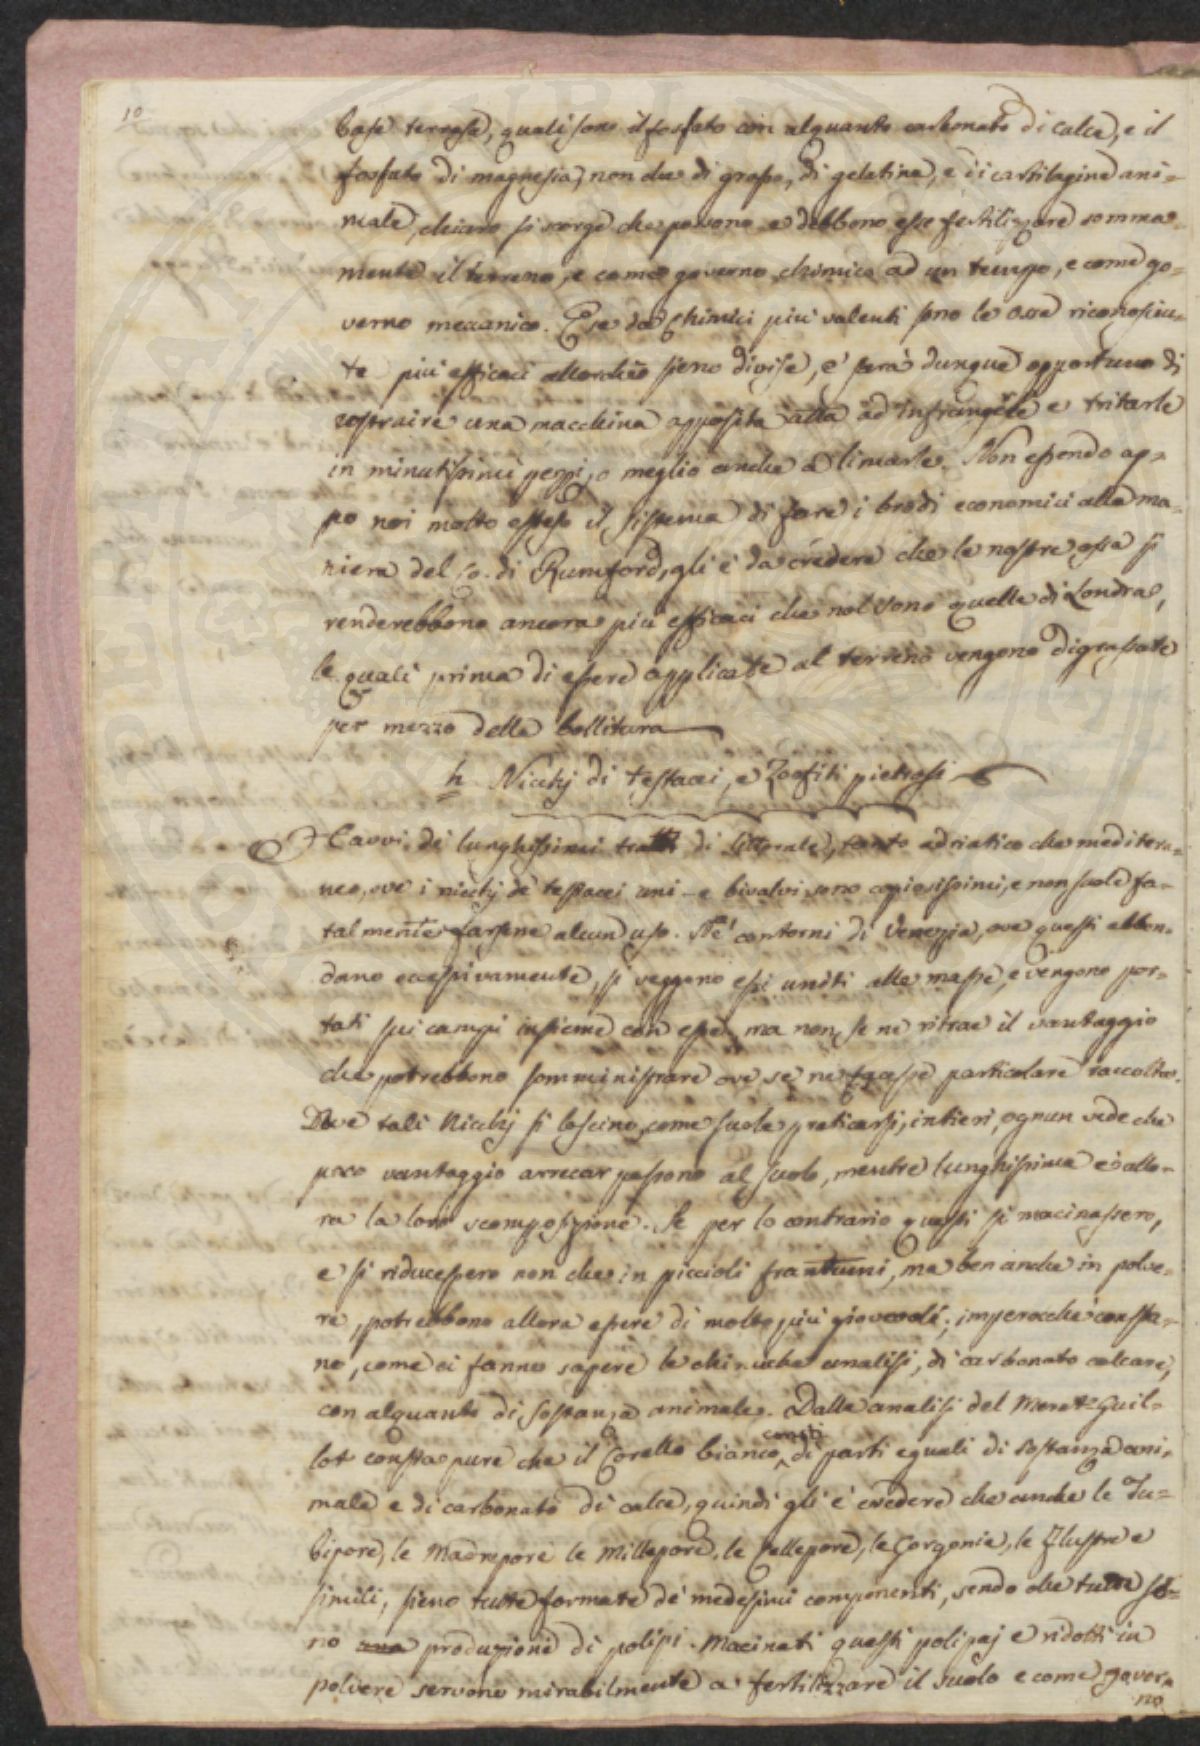 10
base terrosa, quali sono il fosfato con alquanto carbonato di calce, e il
fosfato di magnesia, non che di grasso, di gelatina, e di cartilagine ani-
male, chiaro si scorge che possono e debbono esse fertilizzare somma-
mente il terreno, e come governo chimico ad un tempo, e come go-
verno meccanico. E se da' Chimici più valenti sono le ossa riconosciu-
te più efficaci allorchè sieno divise, e' sarà dunque opportuno di
costruire una macchina apposita atta ad infrangerle e tritarle
in minutissimi pezzi, o meglio anche a limarle. Non essendo ap-
po noi molto esteso il sistema di fare i brodi economici alla ma-
niera del Co. di Rumford, gli è da credere che le nostre ossa si
renderebbono ancora più efficaci che nol sono quelle di Londra,
le quali prima di essere applicate al terreno vengono digrassate
per mezzo della bollitura
h. Nicchj di testacei, e Zoofiti pietrosi
Havvi di lunghissimi tratti di littorale, tanto adriatico che mediterra-
neo, ove i nicchj de' testacei uni- e bivalvi sono copiosissimi, e non suole fa-
talmente farsene alcun uso. Ne' contorni di Venezia, ove questi abbon-
dano eccessivamente, si veggono essi uniti alle masse, e vengono por-
tati sui campi insieme con esse, ma non se ne ritrae il vantaggio
che potrebbono somministrare ove se ne facesse particolare raccolta.
Dove tali Nicchj si lascino, come suole praticarsi, intieri, ognun vede che
poco vantaggio arrecar possono al suolo, mentre lunghissima è allo-
ra la loro scomposizione. Se per lo contrario questi si macinassero,
e si riducessero non che in piccioli frantumi, ma ben anche in polve-
re, potrebbono allora essere di molto più giovevoli; imperocchè consta-
no, come ci fanno sapere le chimiche analisi, di carbonato calcare,
con alquanto di sostanza animale. Dalla analisi del Merat-Guil-
lot consta pure che il Corallo bianco di parti eguali di sostanza ani-
male e di carbonato di calce, quindi gli è credere che anche le Tu-
bipore, le Madrepore le Millepore, le Cellepore, le Gorgonie, le Flustre e
simili, sieno tutte formate de' medesimi componenti, sendo che tutte so-
no produzioni di polipi. Macinati questi polipaj e ridotti in
polvere servono mirabilmente a fertilizzare il suolo e come gover-
no